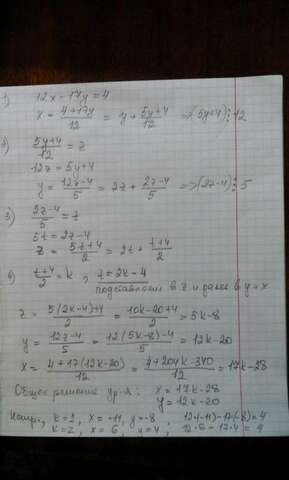 1) 12x - 17y = 4
x = (4+17y)/12 = y + (5y+4)/12 => (5y+4) ⋮ 12
2) (5y+4)/12 = z
12z = 5y+4
y = (12z-4)/5 = 2z + (2z-4)/5 => (2z-4) ⋮ 5
3) (2z-4)/5 = t
5t = 2z-4
z = (5t+4)/2 = 2t + (t+4)/2
4) (t+4)/2 = k, t = 2k-4
подставляем в z и далее в y и x
z = (5(2k-4)+4)/2 = (10k-20+4)/2 = 5k-8
y = (12z-4)/5 = (12(5k-8)-4)/5 = 12k-20
x = (4+17(12k-20))/12 = (4+204k-340)/12 = 17k-28
Общее решение ур-я: x = 17k-28
y = 12k-20
Напр., k=1, x=-11, y=-8, 12·(-11)-17(-8)=4
k=2, x=6, y=4, 12·6-17·4=4